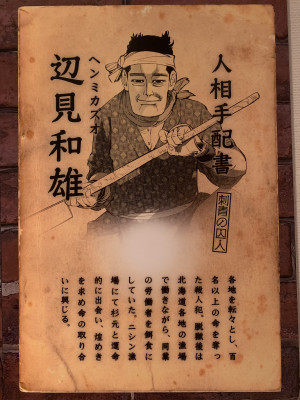 人相手配書
刺青の囚人
ヘンミカズオ
辺見和雄
各地を転々とし、百
名以上の命を奪っ
た殺人犯。脱獄後は
北海道各地の漁場
で働きながら、同業
の労働者を餌食に
していた。ニシン漁
場にて杉元と運命
的に出会い、煌めき
を求め命の取り合
いに興じる。